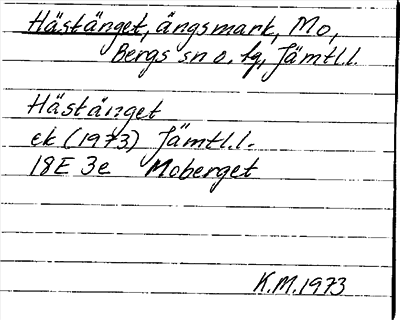 Hästänget, ängsmark, Mo,
Bergs sn o. tg, Jämtl.l.
Hästänget
ek (1973) Jämtl.l.
18E 3e Moberget
K.M.1973